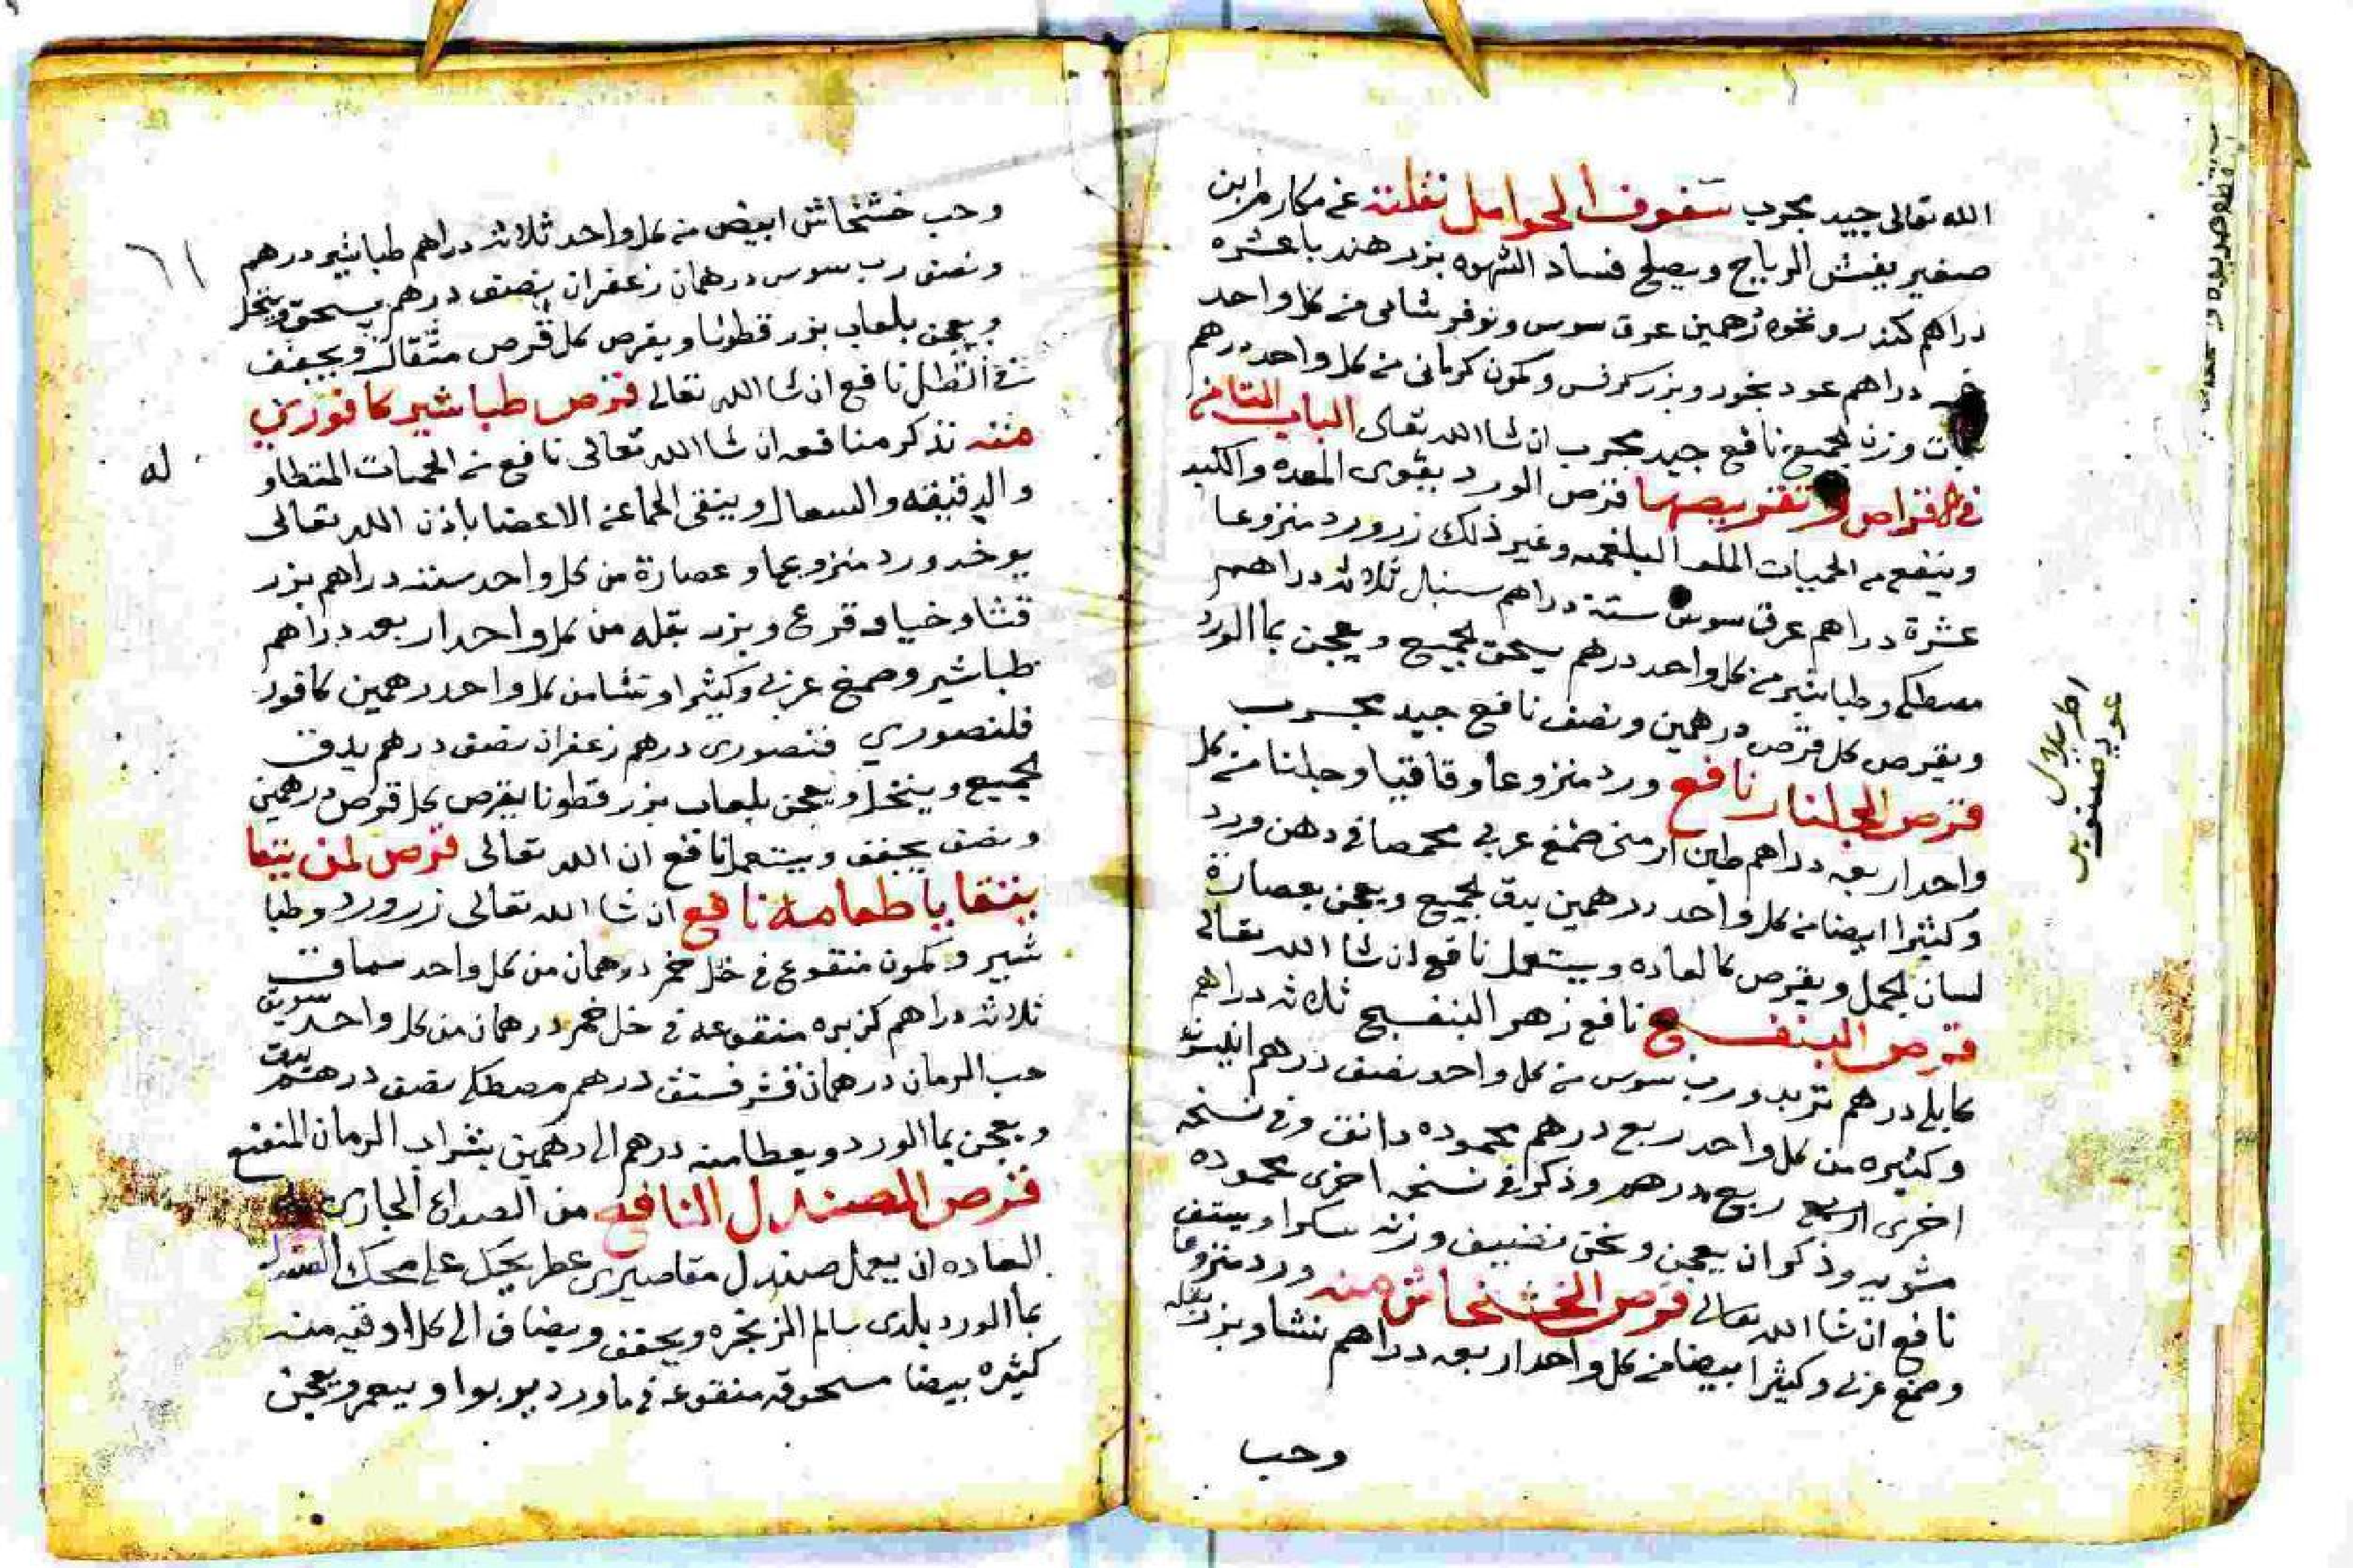 الله تعالى جيد مجرب سفوف الحوامل نقلته من مكارم ابن
صغير يفش الرياح ويصلح فساد الشهوه بزر هندبا عشره
دراهم كندر ونخوه درهمين عرق سوس ونوفر شامى من كل واحد
دراهم عود بخور وبزر كرفس وكمون كرمانى من كل واحد درهم
وزن الجميع نافع جيد مجرب ان شا الله تعالى الباب الثامن
فى الاقراص وتقريصها قرص الورد يقوى المعده والكبد
وينفع من الحميات البلغميه وغير ذلك زرورد منزوعا
عشرة دراهم عرق سوس ستة دراهم سنبل ثلاثه دراهم
مصطكى وطباشير من كل واحد درهم يسحق الجميع ويعجن بما الورد
ويقرص كل قرص درهمين ونصف نافع جيد مجرب
قرص الجلنار نافع ورد منزوعا وقاقيا وجلنا من كل
واحد اربعه دراهم طين ارمنى صمغ عربي محمصا في دهن ورد
وكثيرا ايضا من كل واحد درهمين يدق الجميع ويعجن بعصارة
لسان الحمل ويقرص كالعاده ويستعمل نافع ان شا الله تعالى
قرص البنفسج نافع زهر البنفسج ثلاثه دراهم
كابلى درهم تربد ورب سوس من كل واحد نصف درهم انيسون
وكثيره من كل واحد ربع درهم محموده دانق وفى نسخه
اخرى ربع درهم وذكر فى نسخه اخرى محموده
مشويه وذكر ان يعجن وزنه سكر او يستف
نافع ان شا الله تعالى قرص الخشخاش منه ورد منزوعا
وصمغ عربى وكثيرا بيضا من كل واحد اربعه دراهم نشا وبزر بقله
وحب
وحب خشخاش ابيض من كل واحد ثلاثه دراهم طباشير درهم
ونصف رب سوس درهمان زعفران نصف درهم يسحق وينخل
ويعجن بلعاب بزر قطونا ويقرص كل قرص مثقال ويجفف
في الظل نافع ان شا الله تعالى قرص طباشير كافورى
منه نذكر منافعه ان شا الله تعالى نافع من الحميات المتطاو
والدقيقه والسعال وينقى الحما عن الاعضا باذن الله تعالى
يوخد ورد منزوعا وعصارة من كل واحد ستة دراهم بزر
قثا وخيار وقرع وبزر بقله من كل واحد اربعه دراهم
طباشير وصمغ عربى وكثيرا ونشا من كل واحد درهمين كافور
قلنصوري فنصورى درهم زعفران نصف درهم يدق
الجميع وينخل ويعجن بلعاب بزر قطونا يقرص كل قرص درهمين
ونصف يجفف ويستعمل نافع ان الله تعالى قرص لمن يتقا
يتقايا طعامه نافع ان شا الله تعالى زرورد وطبا
شير وكمون منقوع في خل خمر درهمان من كل واحد سماق
ثلاثه دراهم كزبره منقوعه في خل خمر درهمان من كل واحد سويق
حب الرمان درهمان قشر فستق درهم مصطكى نصف درهم يدق
ويعجن بما الورد ويعطا منه درهم الى درهمين بشراب الرمان المنعنع
قرص الصندل النافع من الصداع الجارى
العاده ان يعمل صندل مقاصيرى عطر يحك على محك الصندل
بما الورد بلدى سالم الزنجره ويجفف ويضاف الى كل اوقيه منه
كثيره بيضا مسحوقه منقوعه في ما ورد ويعجن
٦١
له